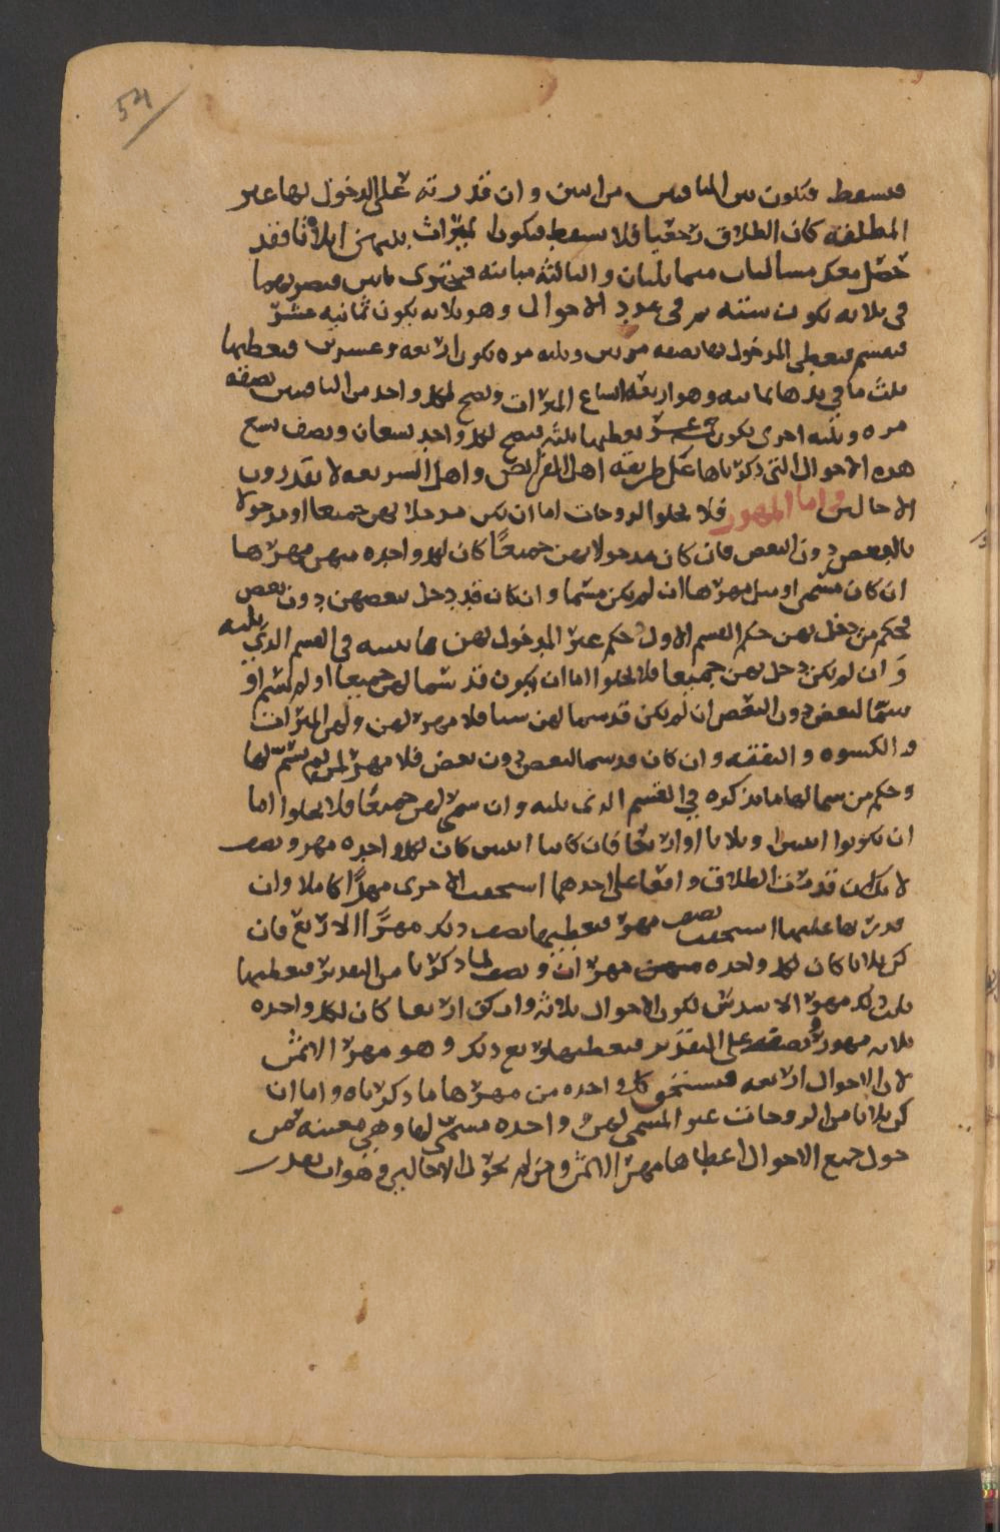 54
فيسقط فتكون بين الباقيتين من اثنين وان قدرته على الدخول لها عير
المطلقه كان الطلاق رجعيا فلا يسقط فيكون الميراث بينهن اثلاثا فقد
حصل معك مسالتان متماثلتان والثالثه مباينه فيجتزى باثنين فتضربهما
في ثلاثه تكون سته ثم في عدد الاحوال وهو ثلاثه يكون ثمانيه عشر
فيقسم فيعطى المدخول بها نصفه مرتين وثلثه مره تكون اربعه وعشرين فيعطيها
ثلث ما في يدها ثمانيه وهو اربعة اتساع الميراث ويصح لكل واحد من الباقيتين نصفه
مره وثلثه اخرى يكون خمسة عشر يعطيها ثلثه فيصح لكل واحد تسعان ونصف تسع
هذه الاحوال التي ذكرناها على طريقه اهل الفرايض واهل الشريعه لا يقدرون
الا حالين واما المهور فلا يخلوا الزوجات اما ان يكن مدخلا بهن جميعا او مدخولا
بالبعض دون البعض فان كان مدخولا بهن جميعًا كان لكل واحده منهن مهرها
ان كان مسمى او مثل مهرها ان لم يكن مسما وان كان قد دخل ببعضهن دون بعض
فحكم من دخل بهن حكم القسم الاول وحكم غير المدخول بهن ما نبينه في القسم الذي يليه
وَان لم يكن دخل بهن جميعا فلا يخلوا اما ان يكون قد سما لهن جميعا او لم يسم او
سمّا لبعض دون البعض ان لم يكن قد سما لهن شيا فلا مهر لهن ولهن الميراث
والكسوه والنفقه وان كان قد سما لبعض دون بعض فلا مهر لمن لم يسمّ لها
وحكم من سما لها ما نذكره في القسم الذي يليه وان سمى لهن جميعًا فلا يخلوا اما
ان يكونوا اثنتين او ثلاثا او اربعًا فان كانتا اثنتين كان لكل واحده مهر ونصف
لانك ان قدرت الطلاق واقعا على احدهما استحقت الاخرى مهرًا كاملا وان
قدرتها عليها استحقت نصف مهر فيعطيها نصف ذلك مهرًا الا ربع فان
كن ثلاثا كان لكل واحده مهران ونصف لما ذكرنا من التقدير فيعطيها
ثلث ذلك مهر الا سدس لكون الاحوال ثلاثه وان كن اربعا كان لكل واحده
ثلاثه مهور ونصف على التقدير فيعطيها ربع ذلك وهو مهر الا ثمن
لان الاحوال اربعه فيستحق كل واحده من مهرها ما ذكرناه واما ان
كن ثلاثا من الزوجات غير المسمى لهن وواحده مسمى لها وهي معينه فمن
حول جميع الاحوال اعطاها مهر الا ثمن ومن لم يحول الا حالين وهو ان يقدر